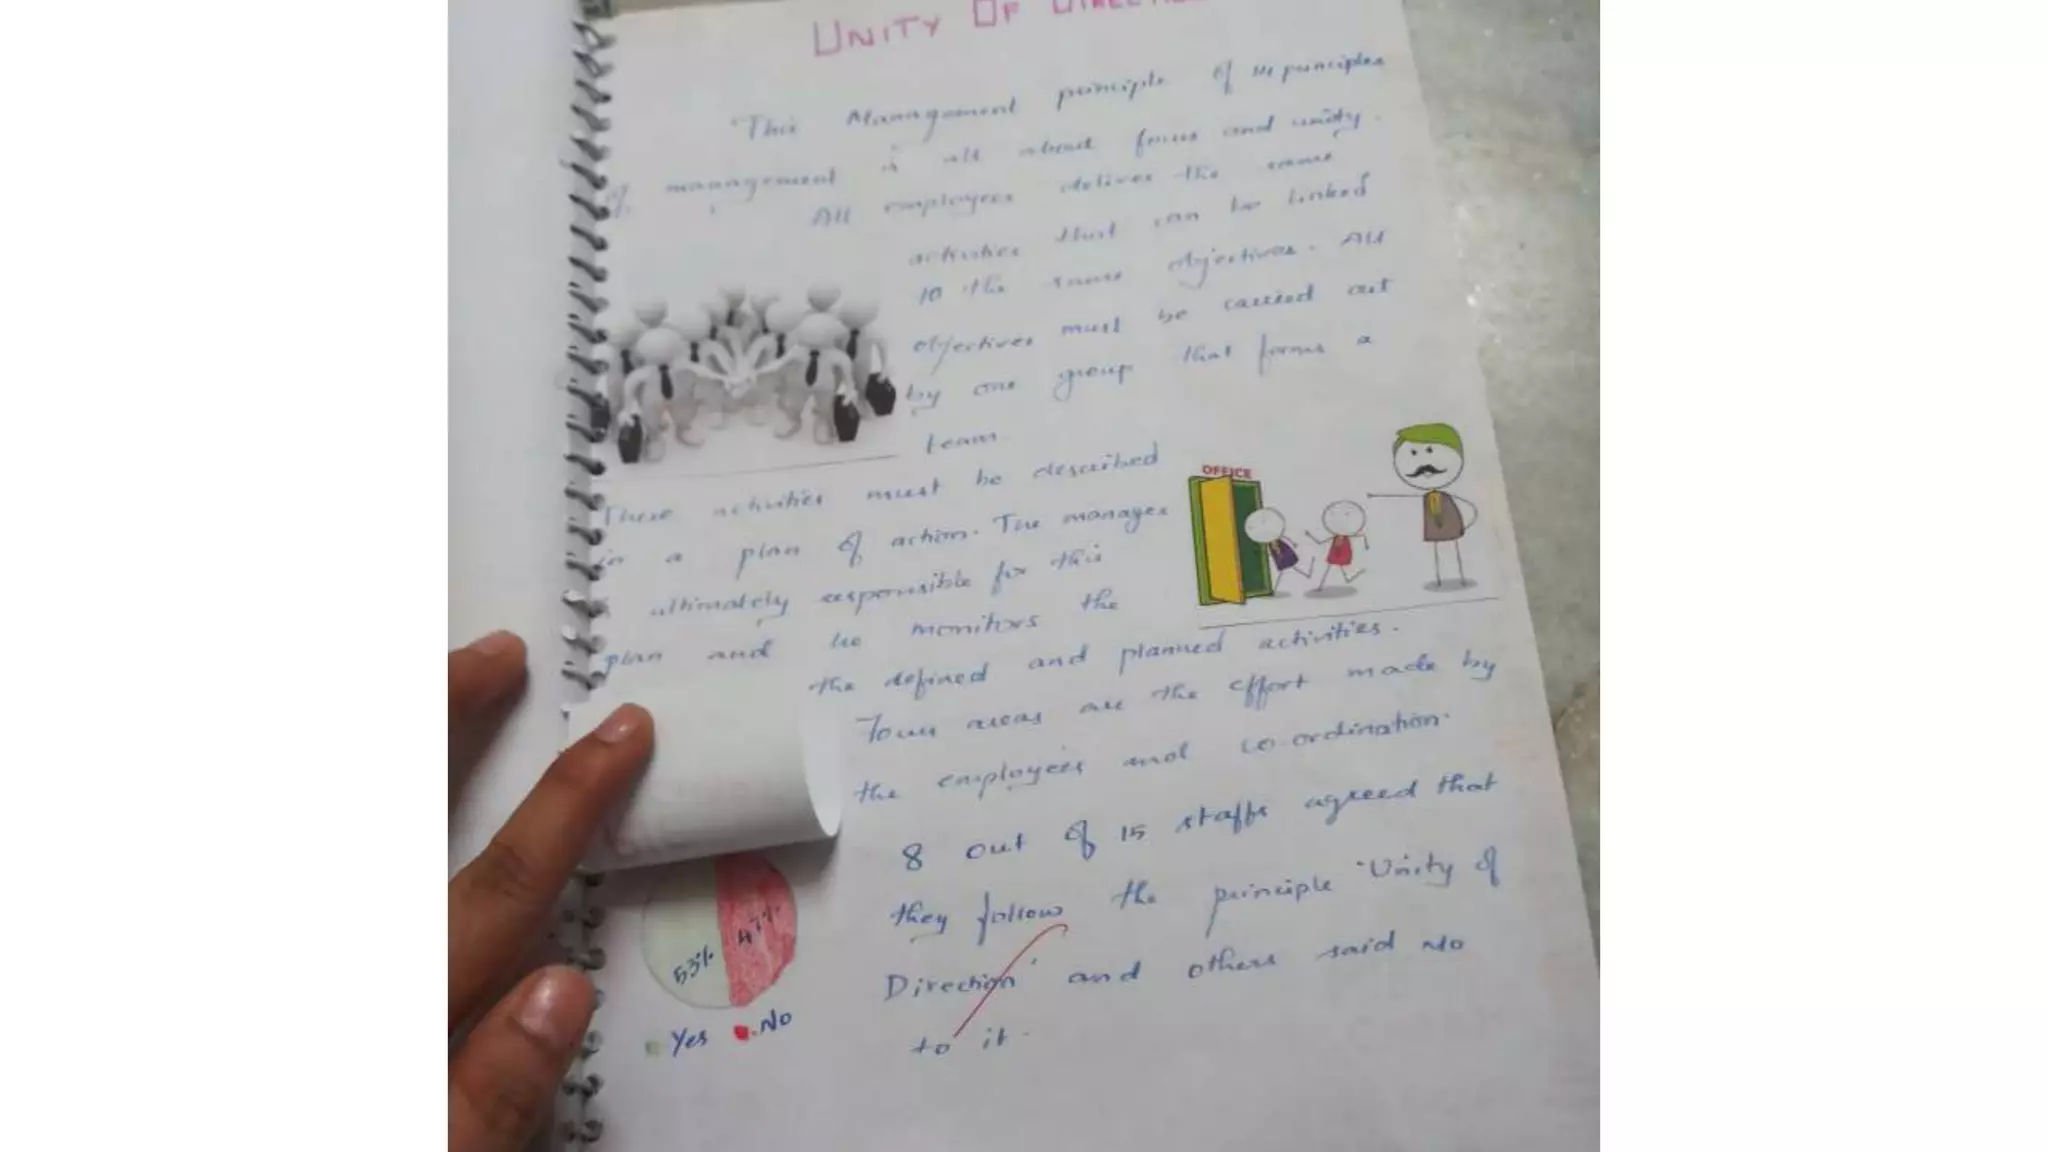 UNITY OF DIRECTIO
This Management principle of 14 principles
of management is all about focus and unity.
All employees deliver the same
activities that can be linked
to the same objectives. All
objectives must be carried out
by one group that forms a
team.
These activities must be described
in a plan of action. The manager
ultimately responsible for this
plan and he monitors the
the defined and planned activities.
Focus areas are the effort made by
the employees and co-ordination.
OFFICE
8 out of 15 staffs agreed that
they follow the principle 'Unity of
Direction' and others said No
to it.
53% 47%
Yes No